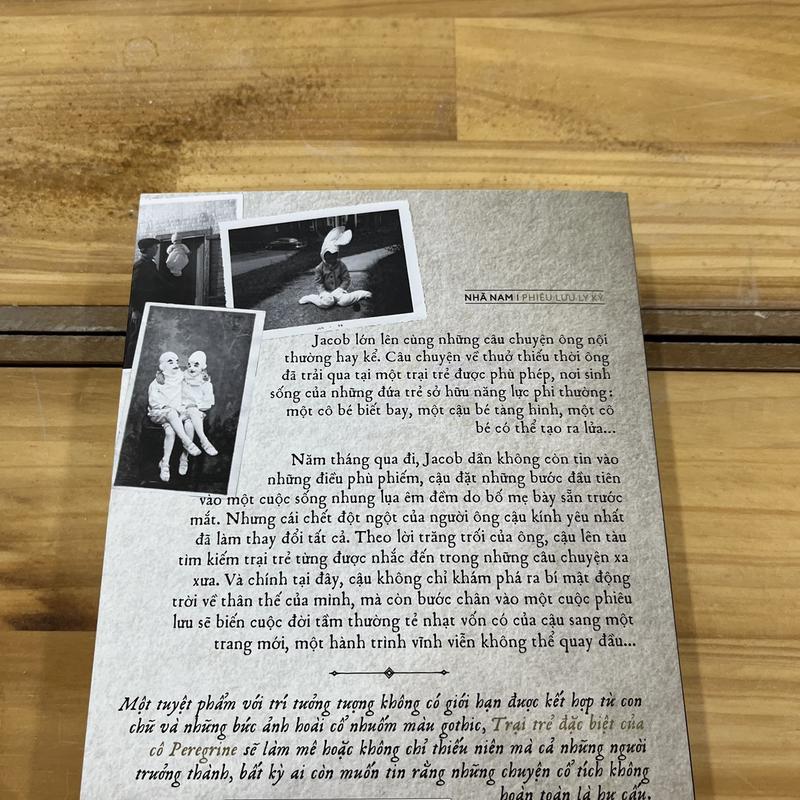 NHÃ NAM | PHIÊU LƯU LY KỲ
Jacob lớn lên cùng những câu chuyện ông nội
thường hay kể. Câu chuyện về thuở thiếu thời ông
đã trải qua tại một trại trẻ được phù phép, nơi sinh
sống của những đứa trẻ sở hữu năng lực phi thường:
một cô bé biết bay, một cậu bé tàng hình, một cô
bé có thể tạo ra lửa...
Năm tháng qua đi, Jacob dần không còn tin vào
những điều phù phiếm, cậu đặt những bước đầu tiên
vào một cuộc sống nhung lụa êm đềm do bố mẹ bày sẵn trước
mắt. Nhưng cái chết đột ngột của người ông cậu kính yêu nhất
đã làm thay đổi tất cả. Theo lời trăng trối của ông, cậu lên tàu
tìm kiếm trại trẻ từng được nhắc đến trong những câu chuyện xa
xưa. Và chính tại đây, cậu không chỉ khám phá ra bí mật động
trời về thân thế của mình, mà còn bước chân vào một cuộc phiêu
lưu sẽ biến cuộc đời tầm thường tẻ nhạt vốn có của cậu sang một
trang mới, một hành trình vĩnh viễn không thể quay đầu...
Một tuyệt phẩm với trí tưởng tượng không có giới hạn được kết hợp từ con
chữ và những bức ảnh hoài cổ nhuốm màu gothic, Trại trẻ đặc biệt của
cô Peregrine sẽ làm mê hoặc không chỉ thiếu niên mà cả những người
trưởng thành, bất kỳ ai còn muốn tin rằng những chuyện cổ tích không
hoàn toàn là hư cấu.